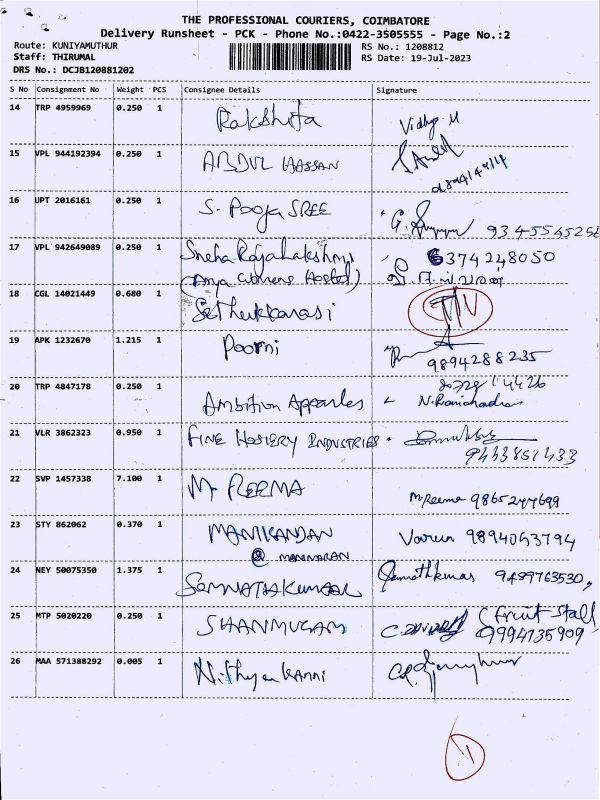 THE PROFESSIONAL COURIERS, COIMBATORE
Delivery Runsheet - PCK - Phone No.:0422-3505555 - Page No.:2
Route: KUNIYAMUTHUR RS No.: 1208812
Staff: THIRUMAL RS Date: 19-Jul-2023
DRS No.: DCJB120881202
S No Consignment No Weight PCS Consignee Details Signature
14 TRP 4959969 0.250 1 Rakshita Vidhya M
15 VPL 944192394 0.250 1 ABDUL HASSAN
16 UPT 2016161 0.250 1 S. Pooja SREE G.
17 VPL 942649089 0.250 1 Sneha Rajalakshmi 6374248050
(Anya womens Hostel)
18 CGL 14021449 0.680 1 Sethukkarasi
19 APK 1232670 1.215 1 Poorni
9894288235
20 TRP 4847178 0.250 1 Ambition Apparles N. Ramchadra
21 VLR 3862323 0.950 1 FINE HOSIERY INDUSTRIES
9443851433
22 SVP 1457338 7.100 1 M. REEMA M.Reema 9865247699
23 STY 862062 0.370 1 MANIKANDAN Varun 9894063794
@ MANIMARAN
24 NEY 50075350 1.375 1 9489763530,
25 MTP 5020220 0.250 1 SHANMUGAM (Fruit Stall
9994735909
26 MAA 571388292 0.005 1 Nithya Kanni